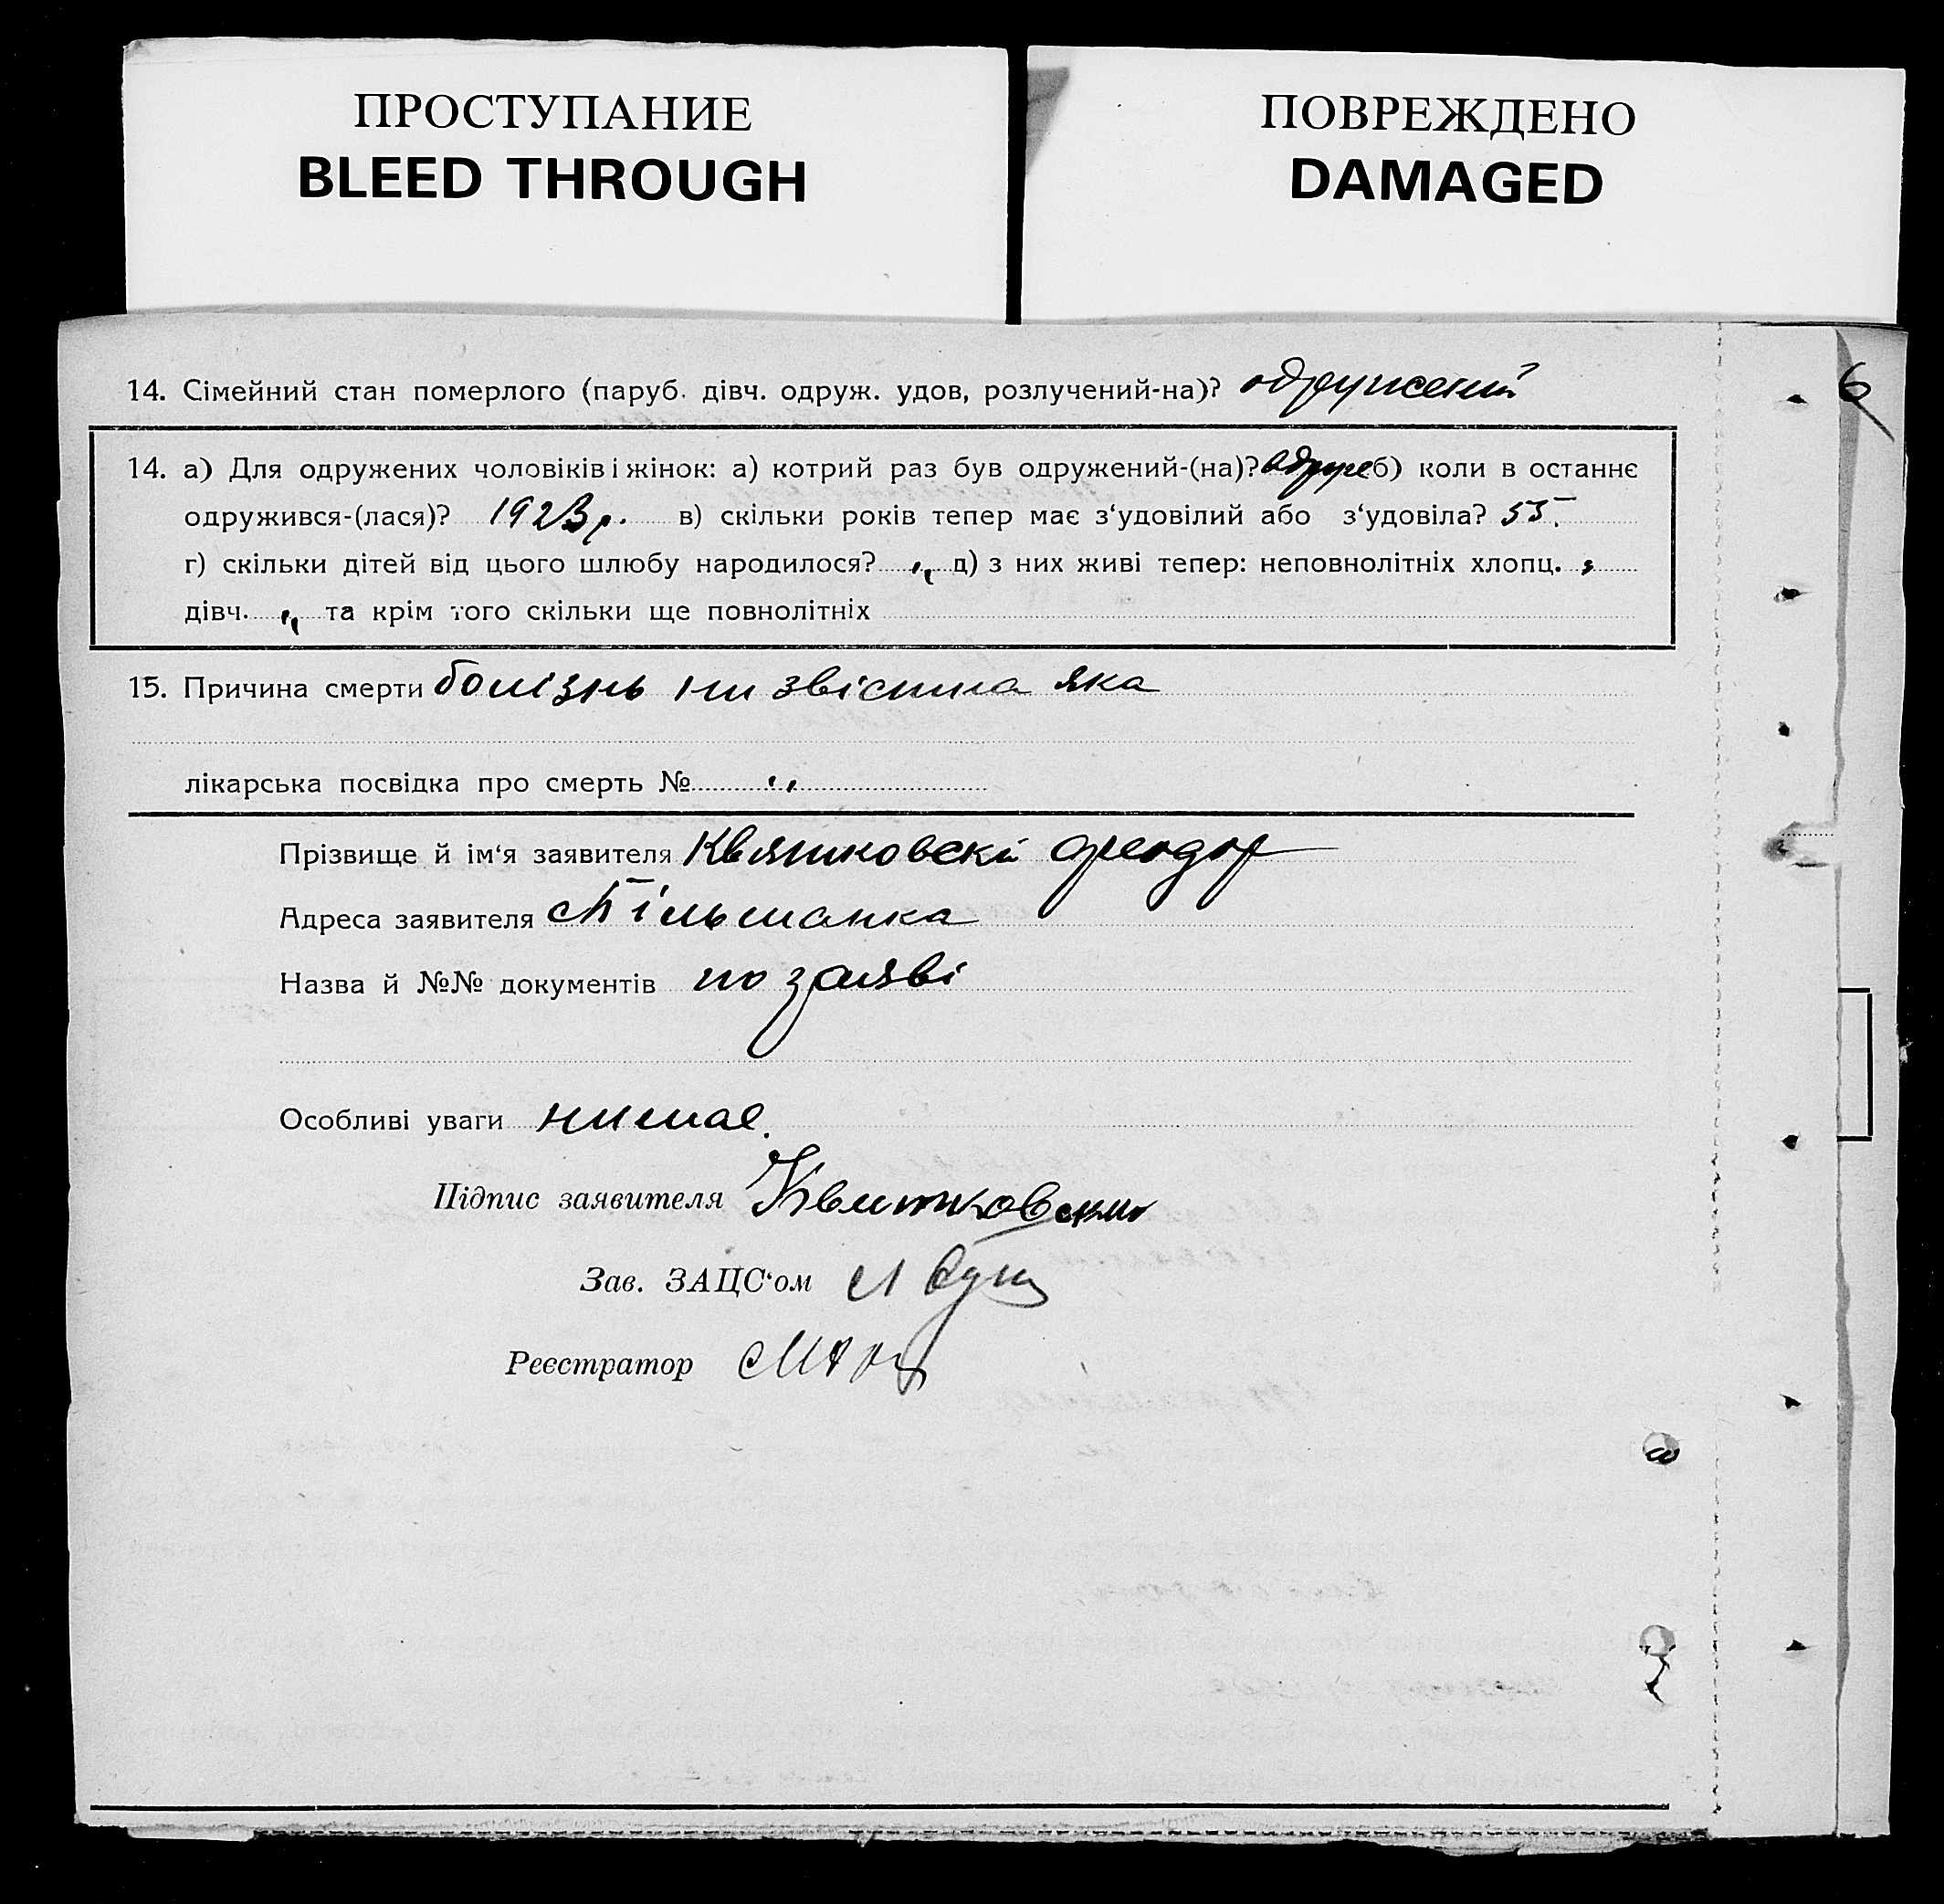 ПРОСТУПАНИЕ
BLEED THROUGH
ПОВРЕЖДЕНО
DAMAGED
6
14. Сімейний стан померлого (паруб. дівч. одруж. удов, розлучений-на)? одружений
14. а) Для одружених чоловіків і жінок: а) котрий раз був одружений-(на)? вдруге б) коли в останнє
одружився-(лася)? 1923 р. в) скільки років тепер має з‘удовілий або з‘удовіла? 55.
г) скільки дітей від цього шлюбу народилося? „ д) з них живі тепер: неповнолітніх хлопц. „
дівч. „ та крім того скільки ще повнолітніх
15. Причина смерти болізнь ни звістна яка
лікарська посвідка про смерть № „
Прізвище й ім‘я заявителя Квятковскі Феодор
Адреса заявителя Вільшанка
Назва й №№ документів по заяві
Особливі уваги нимає.
Підпис заявителя Квитковский
Зав. ЗАЦС‘ом
Реєстратор